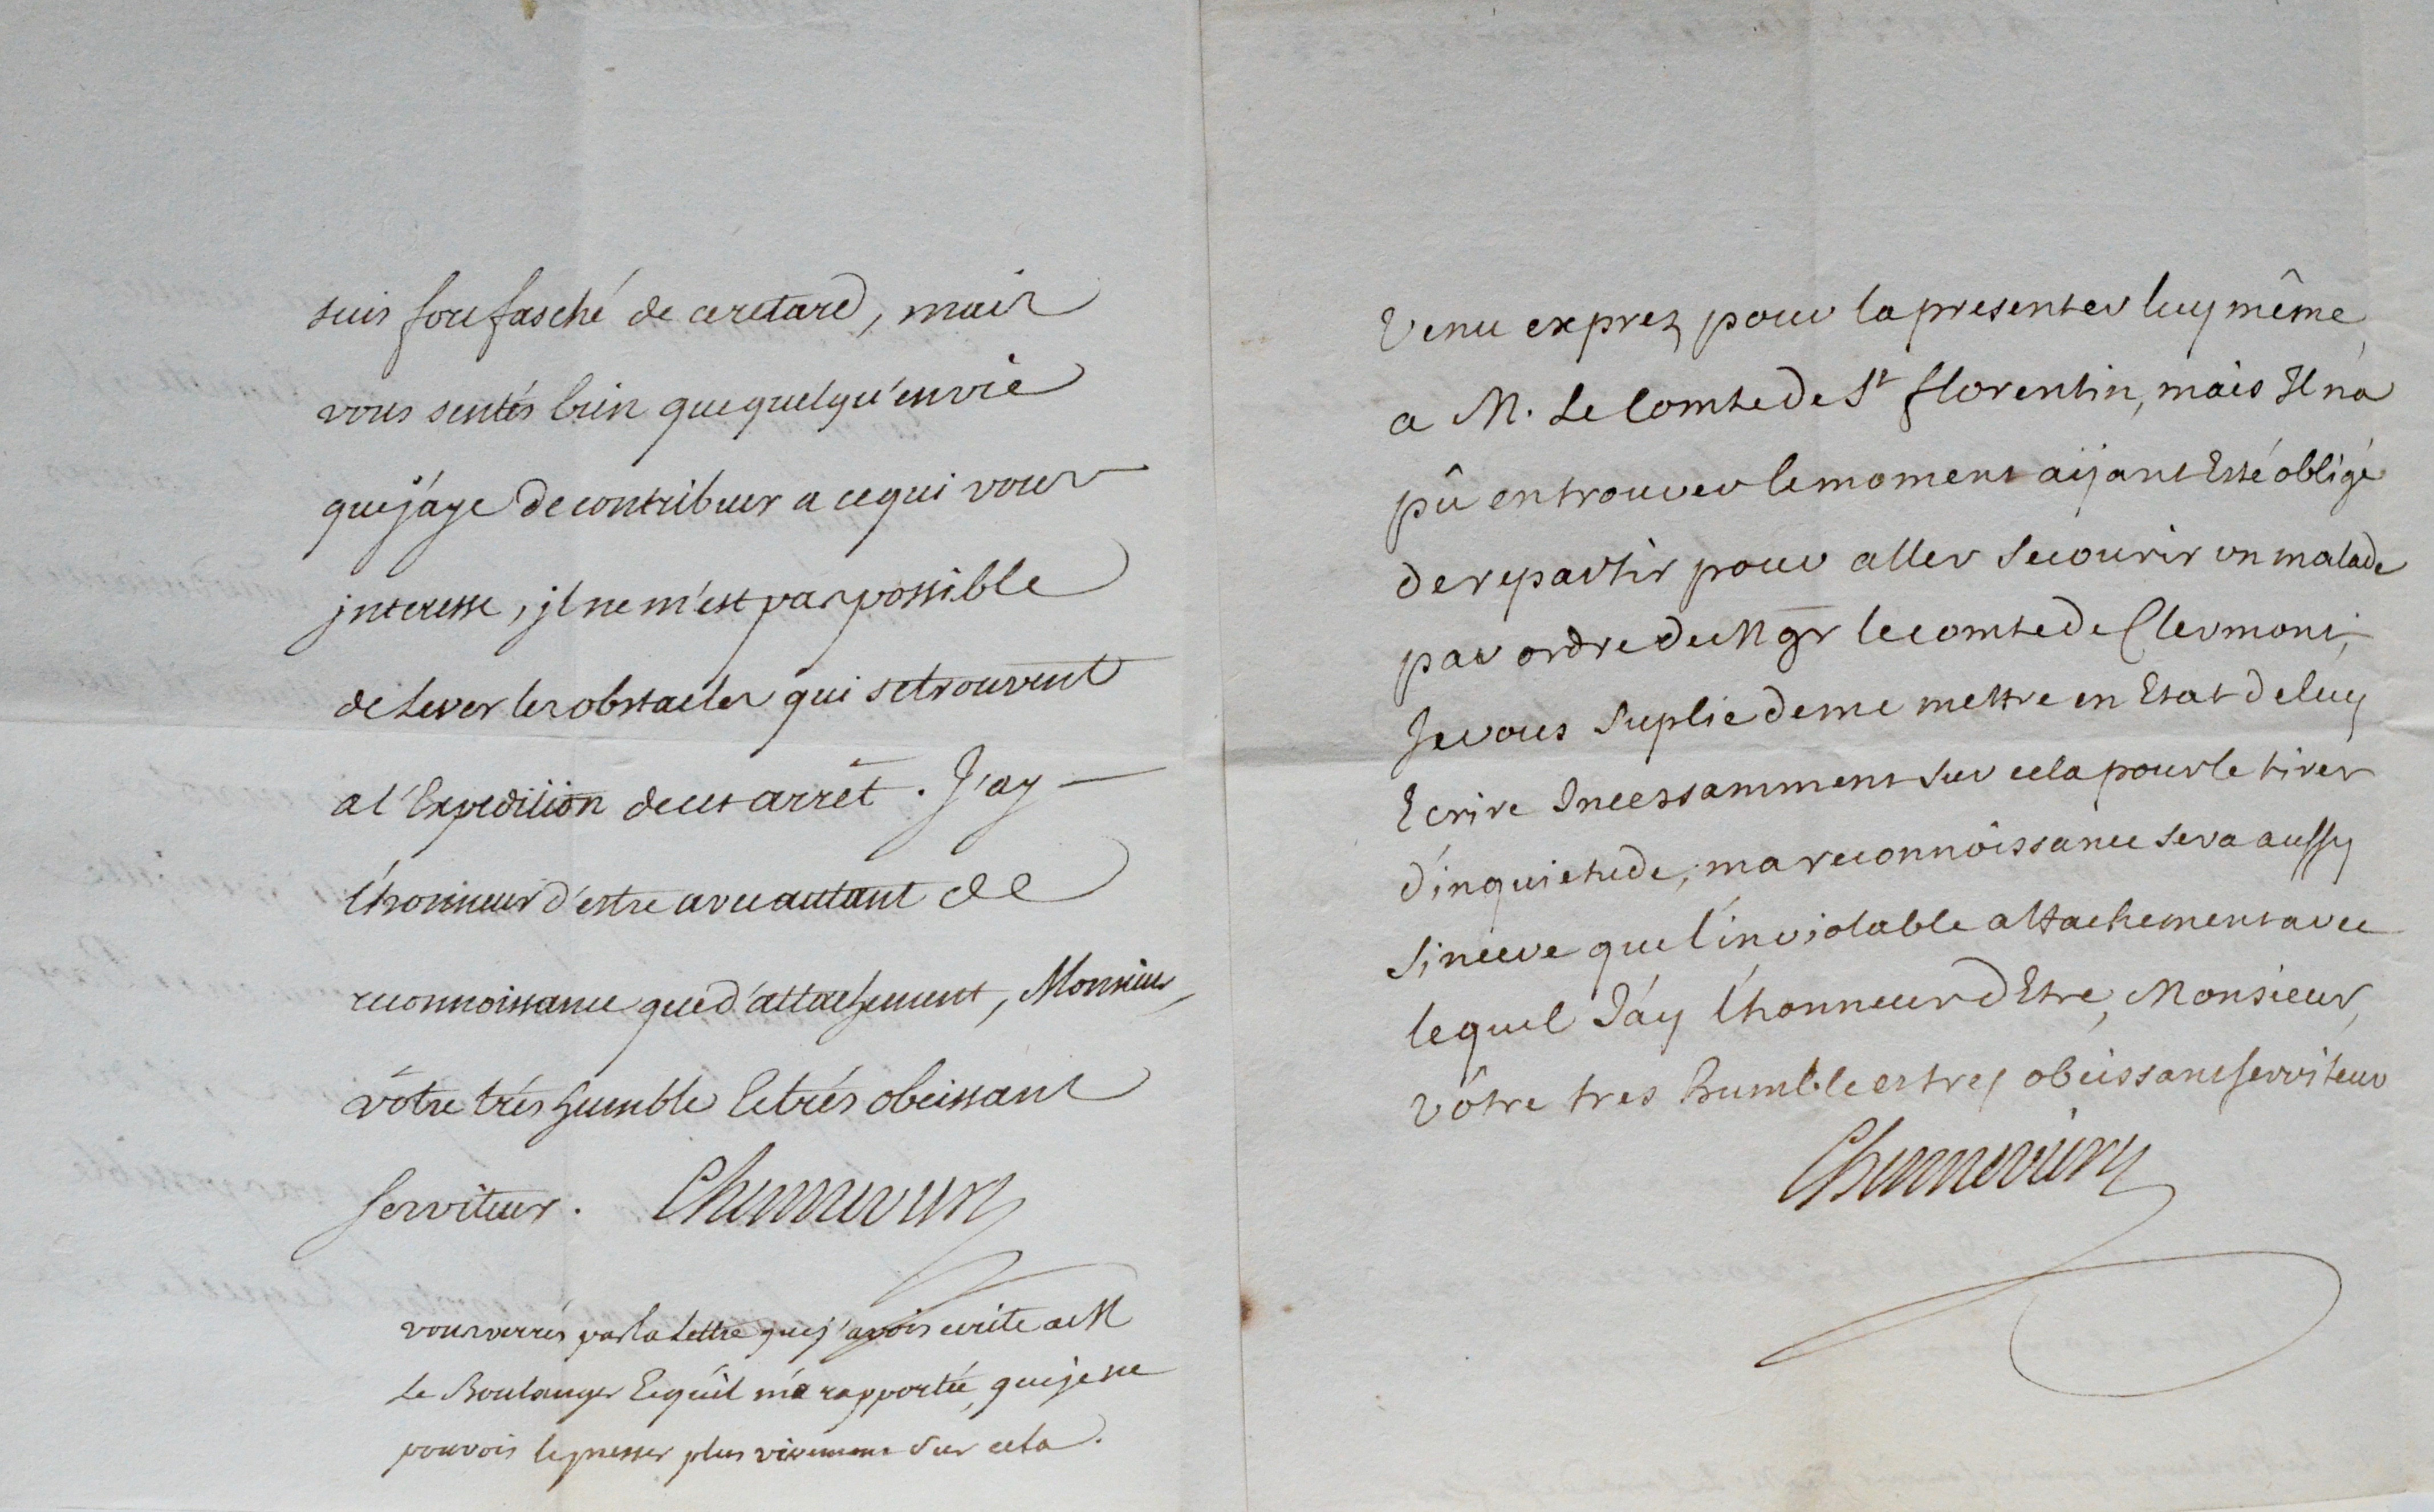 suis fort fasché de ce retard, mais
vous sentés bien que quelqu'envie
que j'aye de contribuer a ce qui vous
jnteresse, jl ne m'est pas possible
de Lever les obstacles qui se trouvent
a l'Expedition de cet arrêt. J'ay
l'honneur d'estre avec autant de
reconnoissance que d'attachement, Monsieur,
vôtre trés humble Et trés obeissant
serviteur. Chennevieres
vous verrés par la Lettre que j'avois ecrite a M
Le Boulanger Et qu'il m'a rapportée, que je ne
pouvois le presser plus vivement sur cela.
Venu exprez pour la presenter luy même
a M. Le Comte de St florentin, mais Il n'a
pû en trouver le moment aÿant Esté obligé
de repartir pour aller secourir un malade
par ordre de Mgr le comte de Clermont,
Je vous suplie de me mettre en Etat de luy
Ecrire Incessamment sur cela pour le tirer
d'inquietude, ma reconnoissance sera aussy
sincere que l'inviolable attachement avec
lequel J'áy l'honneur d'Etre, Monsieur,
vôtre tres humble et tres obeissant serviteur
Chennevieres